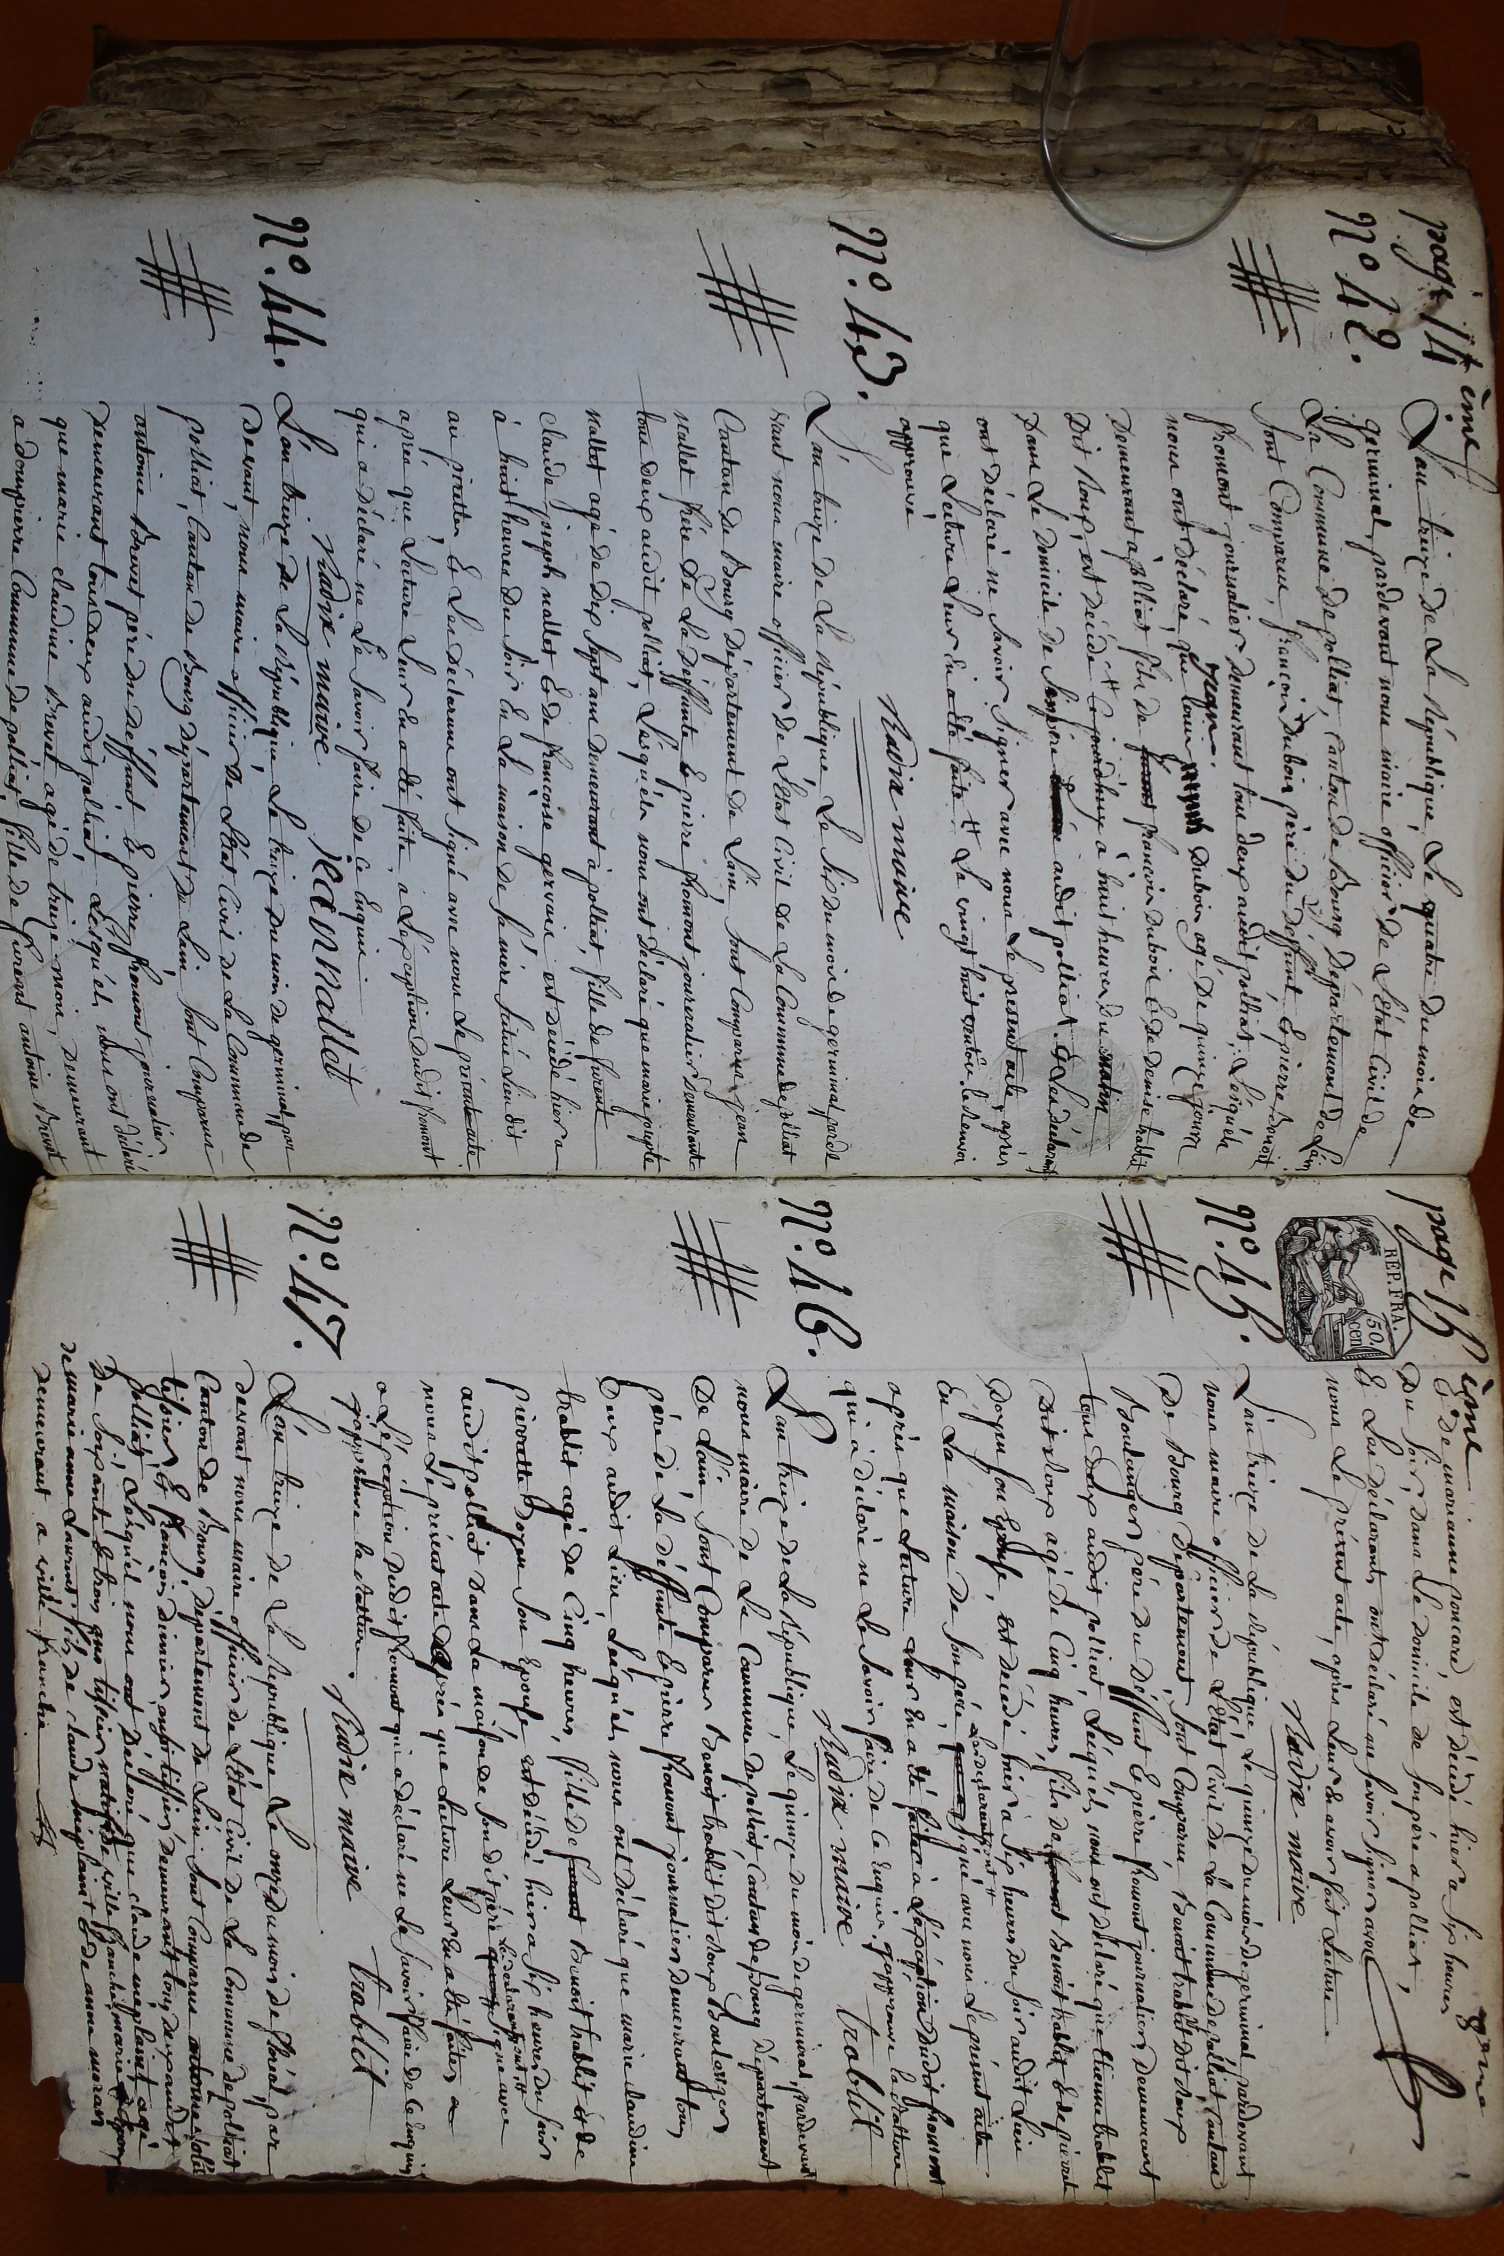 page 14 ème
N° 42.
L'an treize de La République Le quatre du mois de
germinal, pardevant nous maire officier de L'état Civil de
La Commune de polliat, canton de Bourg Département de L'ain
Sont Comparus, françois Dubois père du deffunt, & pierre Benoit
fromont journalier demeurant tous deux audit polliat, Lesquels
nous ont déclaré, que Louis Dubois agé de quinze jours
demeurant à polliat fils de françois Dubois & de Denise trablit
dit Loup, est décédé aujourd'huy à huit heures du matin
dans Le Domicile de Son père audit polliat & Les déclarants
ont déclaré ne Savoir Signer avec nous Le present acte, après
que Lecture Leur en a été faite
approuvé
Nadix maire
N°. 43.
L'an treize de La République Le Six du mois de germinal parde
vant nous maire officier de L'état Civil de La Commune de polliat
Canton de Bourg Département de L'ain, Sont Comparus jean
nallet frère de La deffunte & pierre fromont journalier demeurants
tous deux audit polliat, Lesquels nous ont déclaré que marie josephte
nallet agé de dix Sept ans demeurant à polliat, fille de furent
claude joseph nallet & de françoise gervais est décédé hier a
à huit heures du Soir en La maison de Sa mère
au pirattes & Les déclarans ont Signé avec nous Le présent acte
après que Lecture Leur en a été faite, a L'exception dudit fromont
qui a déclaré ne Le Savoir faire de Ce Enquis
Nadix maire jean nallet
N°. 44.
L'an treize de La République Le treize du mois de germinal, par
devant nous maire officier de L'état Civil de La Commune de
polliat, Canton de Bourg département de L'ain, Sont Comparus
antoine Brevet père du deffunt & pierre fromont journalier
demeurant tous deux audit polliat Lesquels nous ont déclaré
que marie claudine Brevet agé de treize mois, demeurant
a dompierre Commune de polliat, fille de furent antoine Brevet
page 15 ème
& de marianne poncard, est décédé hier a Six heures
Du Soir, dans Le domicile de Son père a polliat,
& Les déclarants ont déclaré ne Savoir Signer avec
nous Le présent acte, après Leur en avoir fait Lecture.
Nadix maire
REP. FRA.
50.
cen
N°. 45.
L'an treize de La République Le quinze du mois de germinal, pardevant
nous maire officier de L'état Civil de La Commune de polliat, Canton
De Bourg département, Sont Comparus, Benoit trablit dit Loup
Boulanger père du Deffunt & pierre fromont journalier, demeurant
tous deux audit polliat, Lesquels nous ont déclaré que étienne trablit
Dit Loup agé De Cinq heures, fils de Benoit trablit & de pierrette
Doyen Son Epouse, est décédé hier à Six heures du Soir audit Lieu
En La maison de Son père, Les déclarants ont Signé avec nous Le présent acte
après que Lecture Leur En a été faite à L'exception dudit fromont
qui à déclaré ne Le Savoir faire de Ce Enquis. j'approuve la Rature
Nadix maire trablit
N°. 46.
L'an treize de La République, Le quinze du mois de germinal, pardevant
nous maire de La Commune de polliat, Canton de Bourg département
De L'ain, Sont Comparus Benoit trablit dit Loup Boulanger
père de La deffunte & pierre fromont journalier demeurant tous
Deux audit Lieu, Lesquels nous ont déclaré que marie claudine
trablit agé de Cinq heures, fille de Benoit trablit et de
pierrette Doyen Son Epouse est décédé hier a Six heures du Soir
audit polliat dans La maison de Son dit père Les déclarants ont Signé avec
nous Le présent acte après que Lecture Leur En a été faites a
a L'exception dudit fromont qui a déclaré ne Le Savoir faire de Ce enquis
j'approuve la Rature.
Nadix maire trablit
N°. 47.
L'an treize de La République Le onze du mois de floréal, par
devant nous maire officier de L'état Civil de La Commune de polliat
Canton de Bourg, Département de L'ain, Sont Comparus antoine
tissier, & françois dimier, aussi tissier, demeurant tous deux audit
polliat, Lesquels nous ont Déclaré que claude méplaint agé
De Soixante & trois ans tissier, natif de ville franche, mari
de marie anne Laurent fils de claude méplaint & de anne moran
demeurant a ville franche